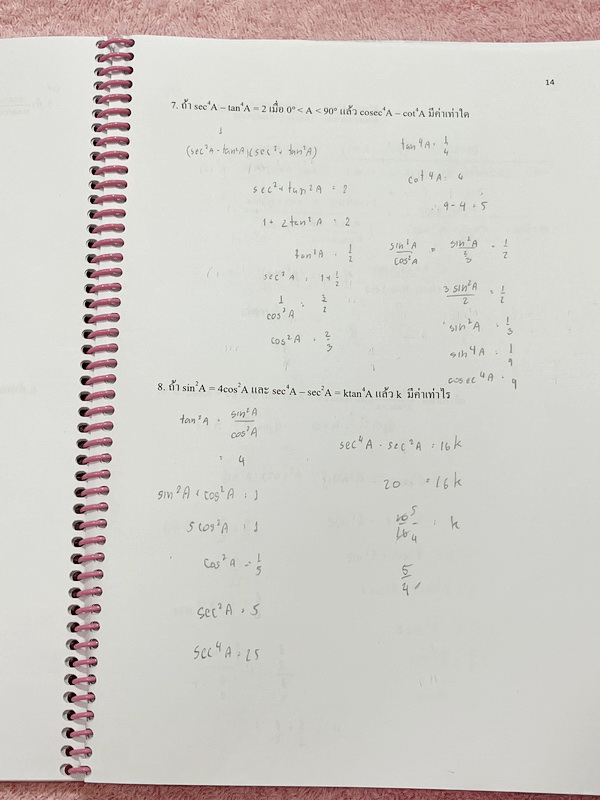 14
7. ถ้า sec⁴A – tan⁴A = 2 เมื่อ 0° < A < 90° แล้ว cosec⁴A – cot⁴A มีค่าเท่าใด
1
(sec²A - tan²A)(sec² + tan²A)
sec² + tan²A = 2
1 + 2tan²A = 2
tan²A = 1/2
sec²A = 1+1/2
1/cos²A = 3/2
cos²A = 2/3
tan⁴A = 1/4
cot⁴A = 4
∴ 9 - 4 = 5
sin²A/cos²A = sin²A/(2/3) = 1/2
3 sin²A/2 = 1/2
sin²A = 1/3
sin⁴A = 1/9
cosec⁴A = 9
8. ถ้า sin²A = 4cos²A และ sec⁴A – sec²A = ktan⁴A แล้ว k มีค่าเท่าไร
tan²A = sin²A/cos²A
= 4
sin²A + cos²A = 1
5cos²A = 1
cos²A = 1/5
sec²A = 5
sec⁴A = 25
sec⁴A - sec²A = 16k
20 = 16k
20/16 5/4 = k
5/4